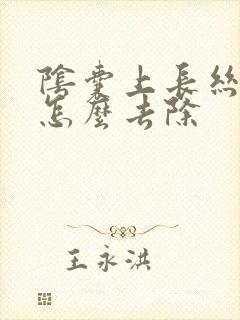 陰囊上長絲
怎麼去除
王永洪